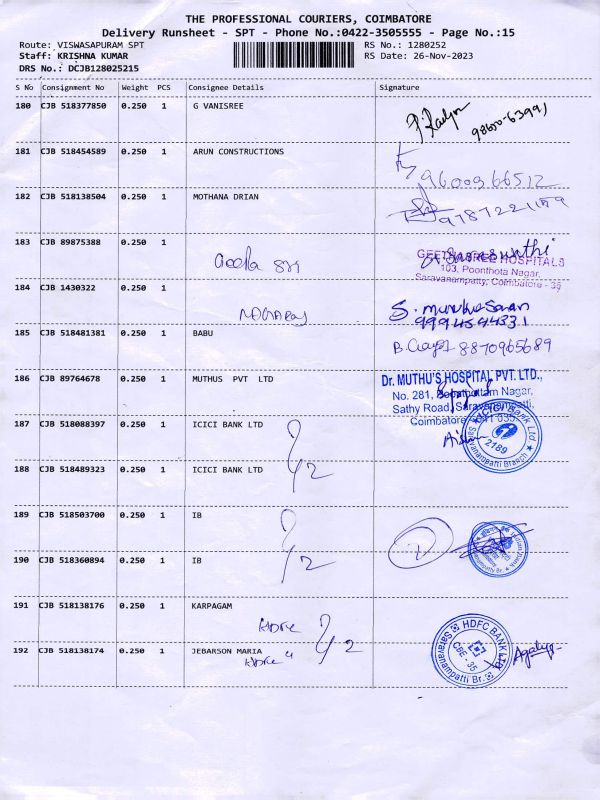 THE PROFESSIONAL COURIERS, COIMBATORE
Delivery Runsheet - SPT - Phone No.:0422-3505555 - Page No.:15
Route: VISWASAPURAM SPT RS No.: 1280252
Staff: KRISHNA KUMAR RS Date: 26-Nov-2023
DRS No.: DCJB128025215
S No Consignment No Weight PCS Consignee Details Signature
180 CJB 518377850 0.250 1 G VANISREE
98650-63991
181 CJB 518454589 0.250 1 ARUN CONSTRUCTIONS
9600966512
182 CJB 518138504 0.250 1 MOTHANA DRIAN
9787221189
183 CJB 89875388 0.250 1
Geetha Sri
GEETHASREE HOSPITALS
103, Poonthota Nagar,
Saravanampatty, Coimbatore - 35
184 CJB 1430322 0.250 1
S. Murukesaran
9994594331
185 CJB 518481381 0.250 1 BABU
8870965689
186 CJB 89764678 0.250 1 MUTHUS PVT LTD
Dr. MUTHU'S HOSPITAL PVT. LTD.,
No. 281, Nagar,
Sathy Road, Saravanampatti,
Coimbatore
187 CJB 518088397 0.250 1 ICICI BANK LTD
ICICI Bank Ltd
2189
Saravanampatti Branch
188 CJB 518489323 0.250 1 ICICI BANK LTD
2
189 CJB 518503700 0.250 1 IB
190 CJB 518360894 0.250 1 IB
2
191 CJB 518138176 0.250 1 KARPAGAM
HDFC
2
HDFC BANK LTD
CBE - 35
Saravanampatti Br.
192 CJB 518138174 0.250 1 JEBARSON MARIA
HDFC "